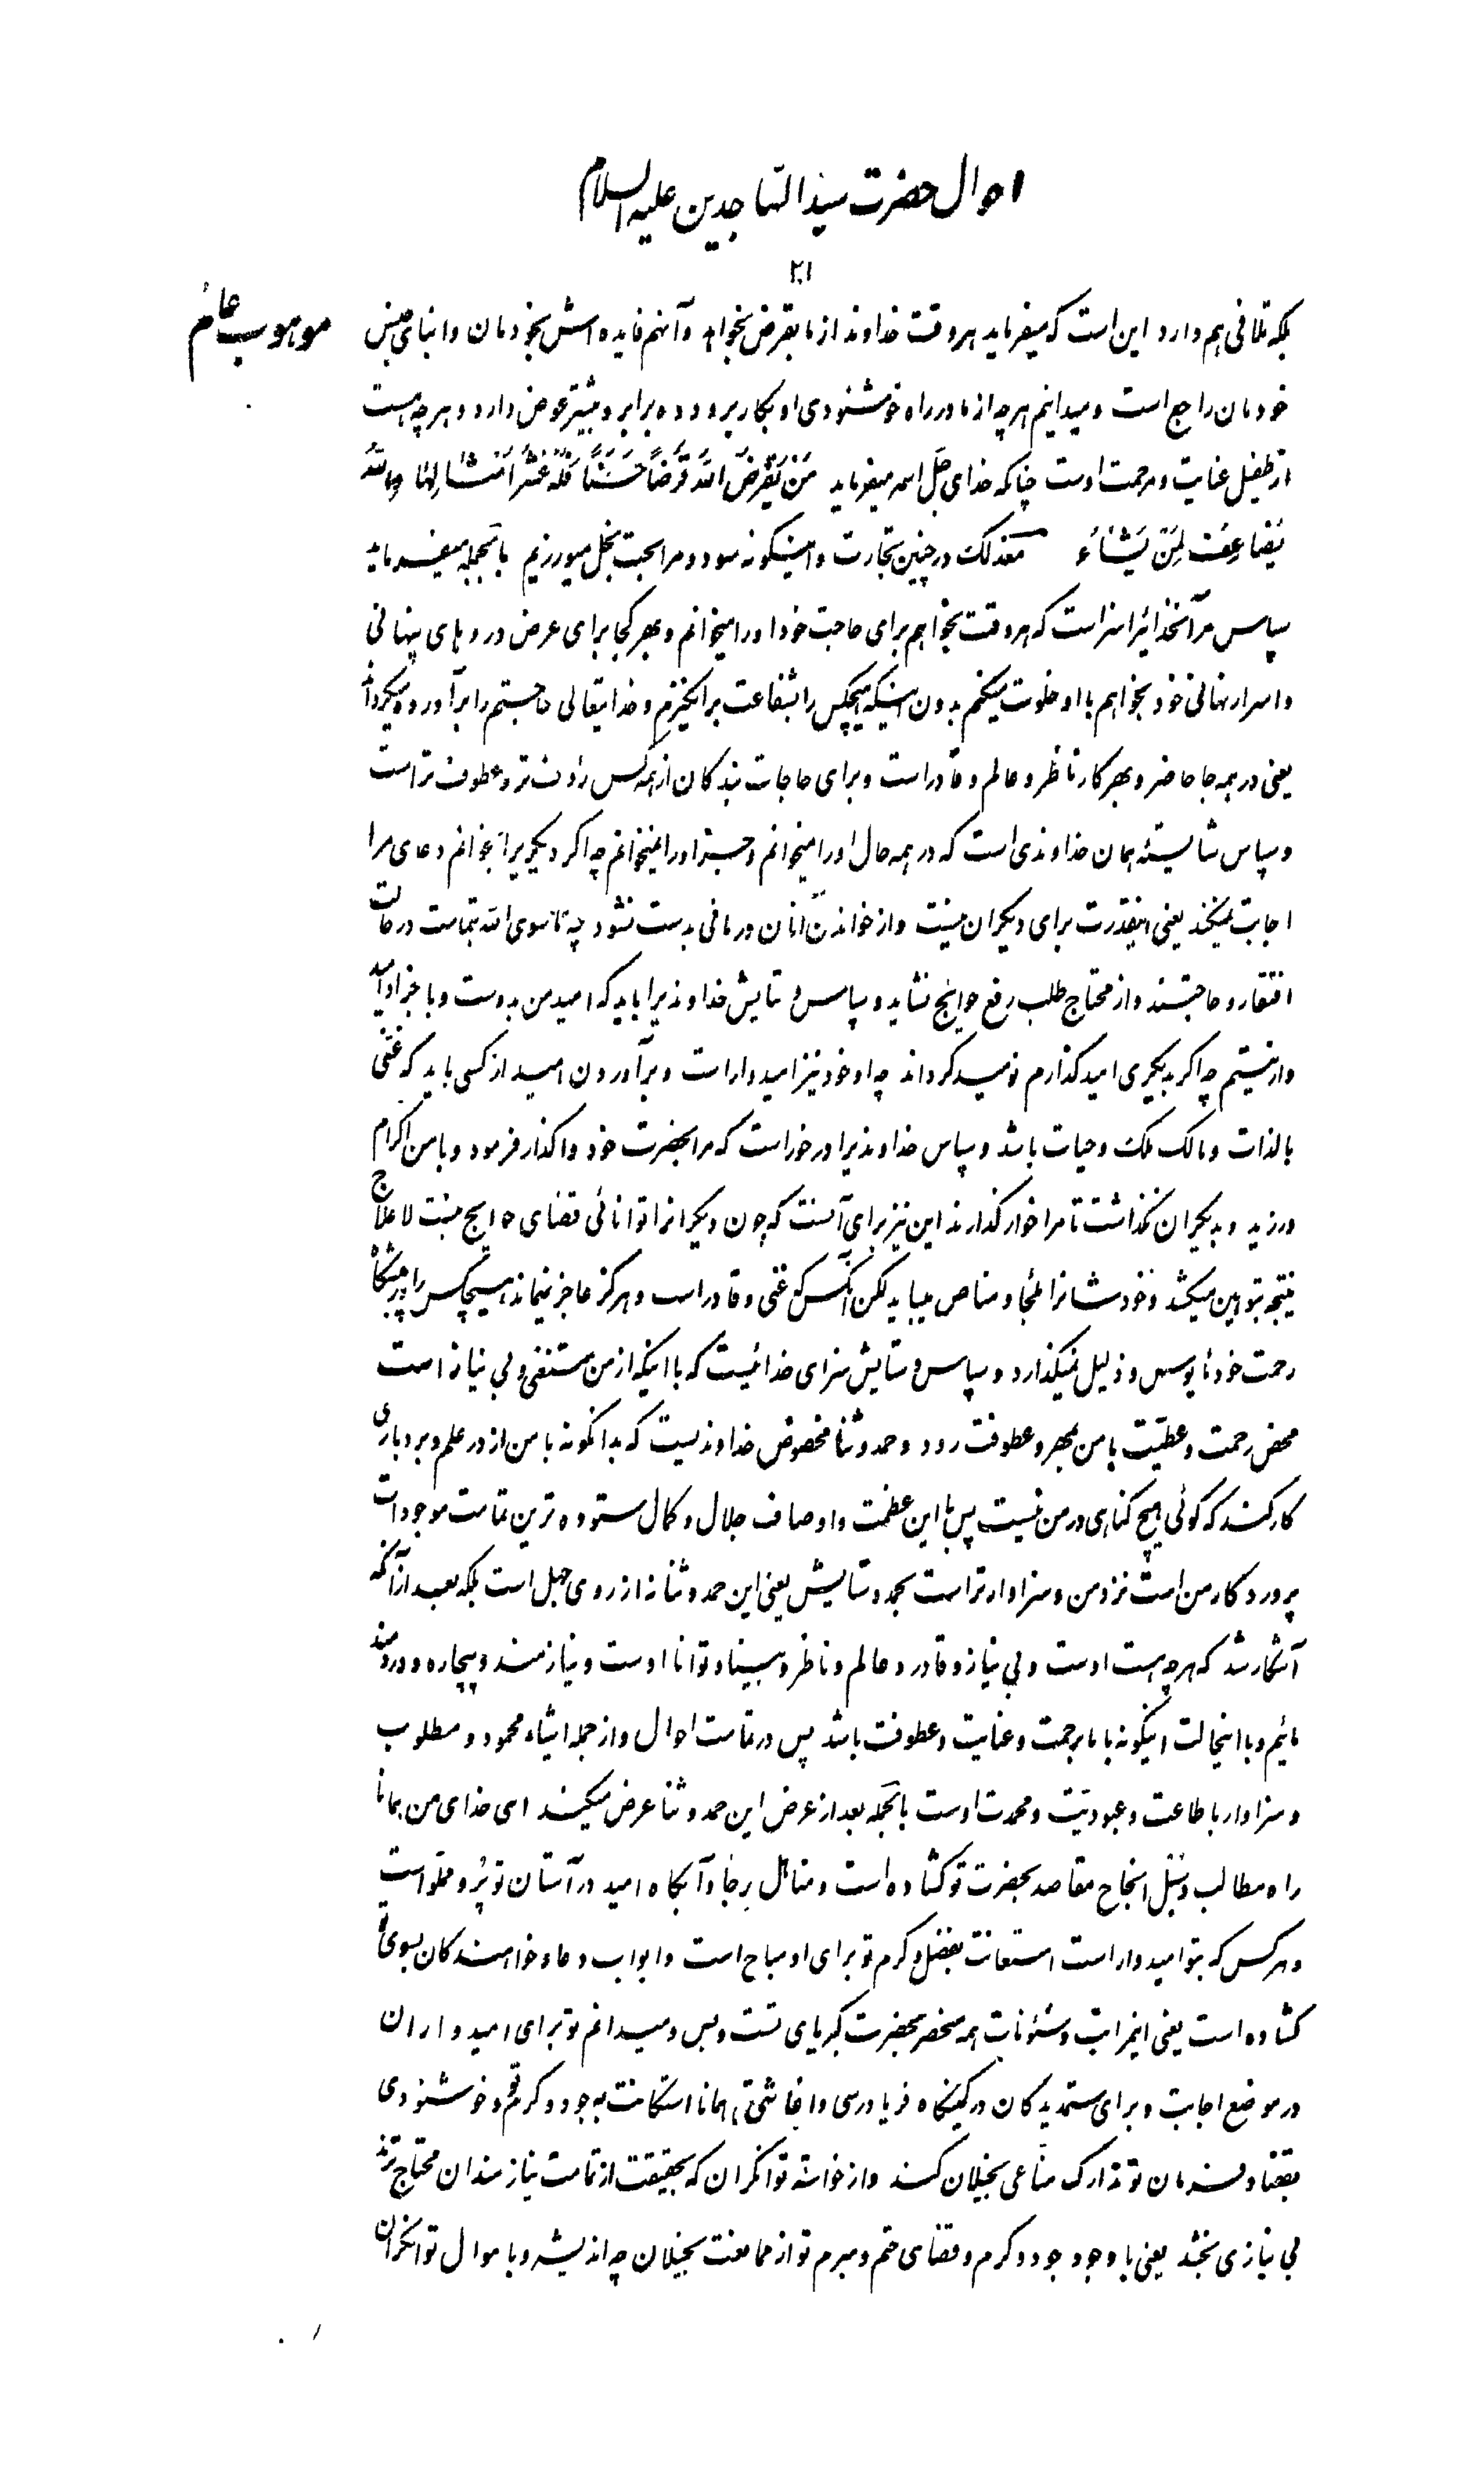 احوال حضرت سید الساجدین علیه السلام
۲۰۱
موهوب عام
بلکه تلافی هم دارد این است که میفرماید هر وقت خداوند از ما بقرض بخواهد و آنهم فایده اش بخودمان و ابنای جنس
خودمان راجع است و میدانیم هرچه از ما در راه خوشنودی او بکار برود ده برابر و بیشتر عوض دارد و هرچه هست
از طفیل عنایت و مرحمت اوست چنانکه خدای جلّ اسمه میفرماید مَنْ یُقْرِضُ اللّهَ قَرْضاً حَسَناً فَلَهُ عَشْرُ اَمْثالِها وَاللّهُ
یُضاعِفُ لِمَنْ یَشاءُ معذلک در چنین تجارت و اینگونه سود و مرابحت بخل میورزیم بالجمله میفرماید
سپاس مر آنخدائیرا سزاست که هر وقت بخواهم برای حاجت خود او را میخوانم و بهر کجا برای عرض دردهای پنهانی
و اسرار نهانی خود بخواهم با او خلوت میکنم بدون اینکه هیچکس را بشفاعت برانگیزم و خدایتعالی حاجتم را برآورده میگرداند
یعنی در همه جا حاضر و بهر کار ناظر و عالم و قادر است و برای حاجات بندگان از همه کس رؤف تر و عطوف تر است
و سپاس شایسته همان خداوندی است که در همه حال او را میخوانم و جز او را نمیخوانم چه اگر دیگریرا بخوانم دعای مرا
اجابت نمیکند یعنی اینقدرت برای دیگران نیست و از خواندن آنان درمانی بدست نشود چه ماسوی الله بتمامت در حالت
افتقار و حاجتند و از محتاج طلب رفع حوایج نشاید و سپاس و ستایش خداوندیرا باید که امید من بدوست و با جز او امید
وار نیستم چه اگر بدیگری امید گذارم نومید گرداند چه او خود نیز امیدوار است و برآوردن امید از کسی باید که غنی
بالذات و مالک ملک و حیات باشد و سپاس خداوندیرا در خور است که مرا بحضرت خود واگذار فرمود و با من اکرام
ورزید و بدیگران نگذاشت تا مرا خوار گذارند این نیز برای آنست که چون دیگرانرا توانائی قضای حوایج نیست لاعلاج
نتیجه بتوهین میکشد و خود شانرا ملجأ و مناص میباید لکن آنکس که غنی و قادر است و هرگز عاجز نیماند هیچکس را از پیشگاه
رحمت خود مأیوس و ذلیل نمیگذارد و سپاس و ستایش سزای خدائیست که با اینکه از من مستغنی و بی نیاز است
محض رحمت و عطیّت با من بمهر و عطوفت رود و حمد و ثنا مخصوص خداوندیست که بدانگونه با من از در حلم و بردباری
کار کند که گوئی هیچ گناهی در من نیست پس با این عظمت و اوصاف جلال و کمال ستوده ترین تمامت موجودات
پروردگار من است نزد من و سزاوارتر است بحمد و ستایش یعنی این حمد و ثنا نه از روی جهل است بلکه بعد از آنکه
آشکار شد که هرچه هست اوست و بی نیاز و قادر و عالم و ناظر و بینا و توانا اوست و نیازمند و بیچاره و دردمند
مائیم و با اینحالت اینگونه با ما برحمت و عنایت و عطوفت باشد پس در تمامت احوال و از جمله اشیاء محمود و مطلوب
و سزاوار با طاعت و عبودیّت و محمدت اوست بالجمله بعد از عرض این حمد و ثنا عرض میکند ای خدای من همانا
راه مطالب و سُبُل انجاح مقاصد بحضرت تو گشاده است و مناهل رجا و آبگاه امید در آستان تو پُر و مملو است
و هر کس که بتو امیدوار است استعانت بفضل و کرم تو برای او مباح است و ابواب دعا و خواهندگان بسوی تو
گشاده است یعنی اینمراتب و شئونات همه منحصر بحضرت کبریای تست و بس و میدانم تو برای امیدواران
در موضع اجابت و برای ستمدیدگان در کمینگاه فریادرسی و اغاثتی همانا استکانت بجود و کرم تو و خوشنودی
بقضا و فرمان تو تدارک مناعی بخیلان کند و از خواسته توانگران که بحقیقت از تمامت نیازمندان محتاج ترند
بی نیازی بخشد یعنی با وجود جود و کرم و قضای حتم و مبرم تو از ممانعت بخیلان چه اندیشه و با موال توانگران